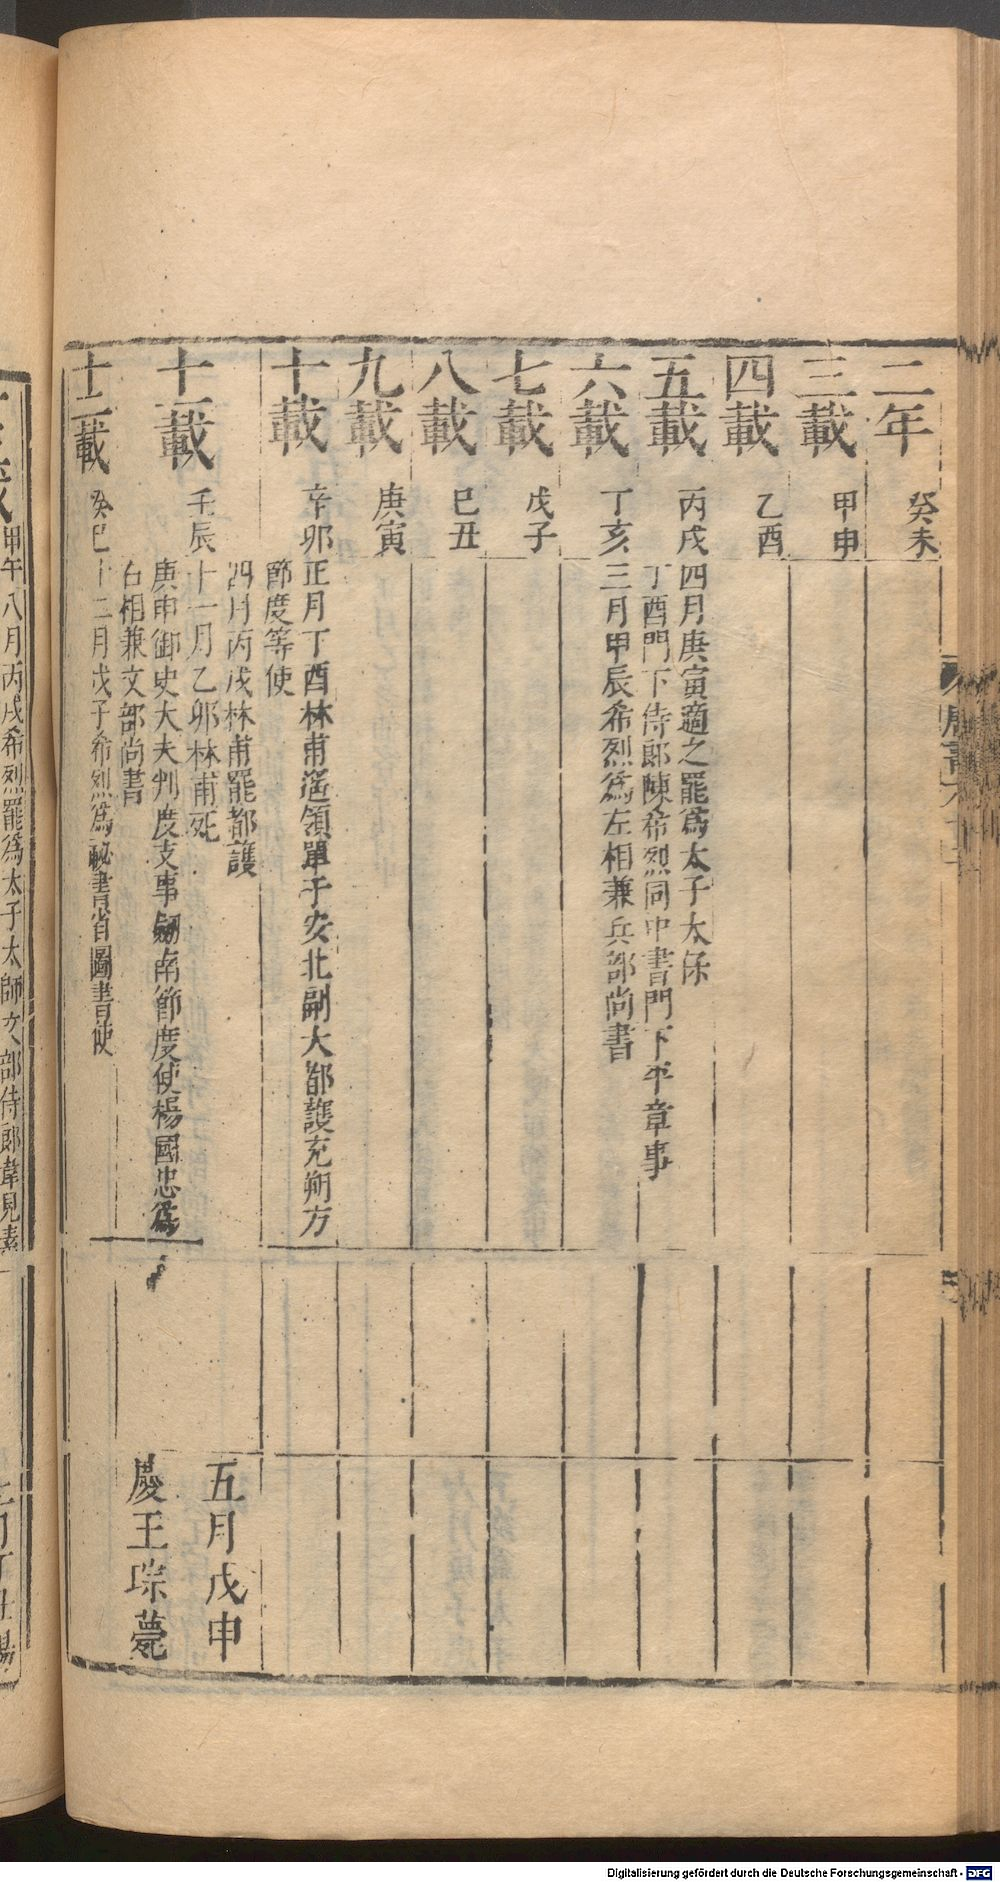 二年 癸未
三載 甲申
四載 乙酉
五載 丙戌 四月庚寅適之罷爲太子太保
丁酉門下侍郎陳希烈同中書門下平章事
六載 丁亥 三月甲辰希烈爲左相兼兵部尚書
七載 戊子
八載 巳丑
九載 庚寅
十載 辛卯 正月丁酉林甫遥領單于安北副大都護充朔方
節度等使
四月丙戌林甫罷都護
十一載 壬辰 十一月乙卯林甫死
五月戊申
庚申御史大夫判度支事劒南節度使楊國忠爲
右相兼文部尚書
慶王琮薨
十二載 癸巳 十二月戊子希烈爲祕書省圖書使
甲午 八月丙戌希烈罷爲太子太師文部侍郎韋見素
Digitalisierung gefördert durch die Deutsche Forschungsgemeinschaft - DFG